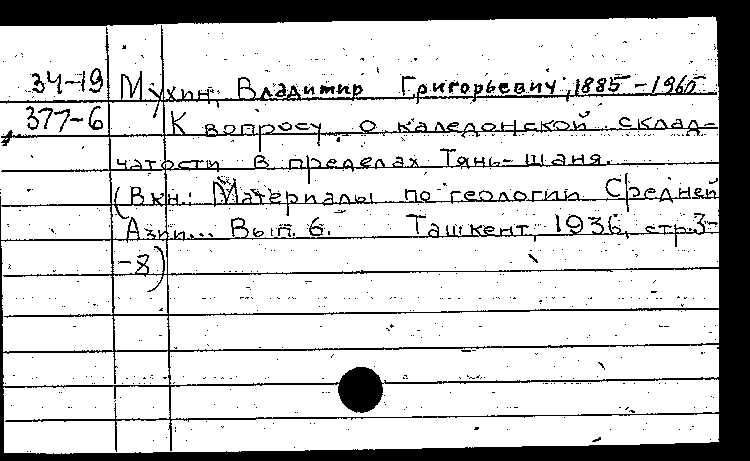 34-19 Мухин, Владимир Григорьевич, 1885-1965
377-6 К вопросу о каледонской склад-
чатости в пределах Тянь-шаня.
(В кн.: Материалы по геологии Средней
Азии... Вып. 6. Ташкент, 1936, стр.3-
-8)